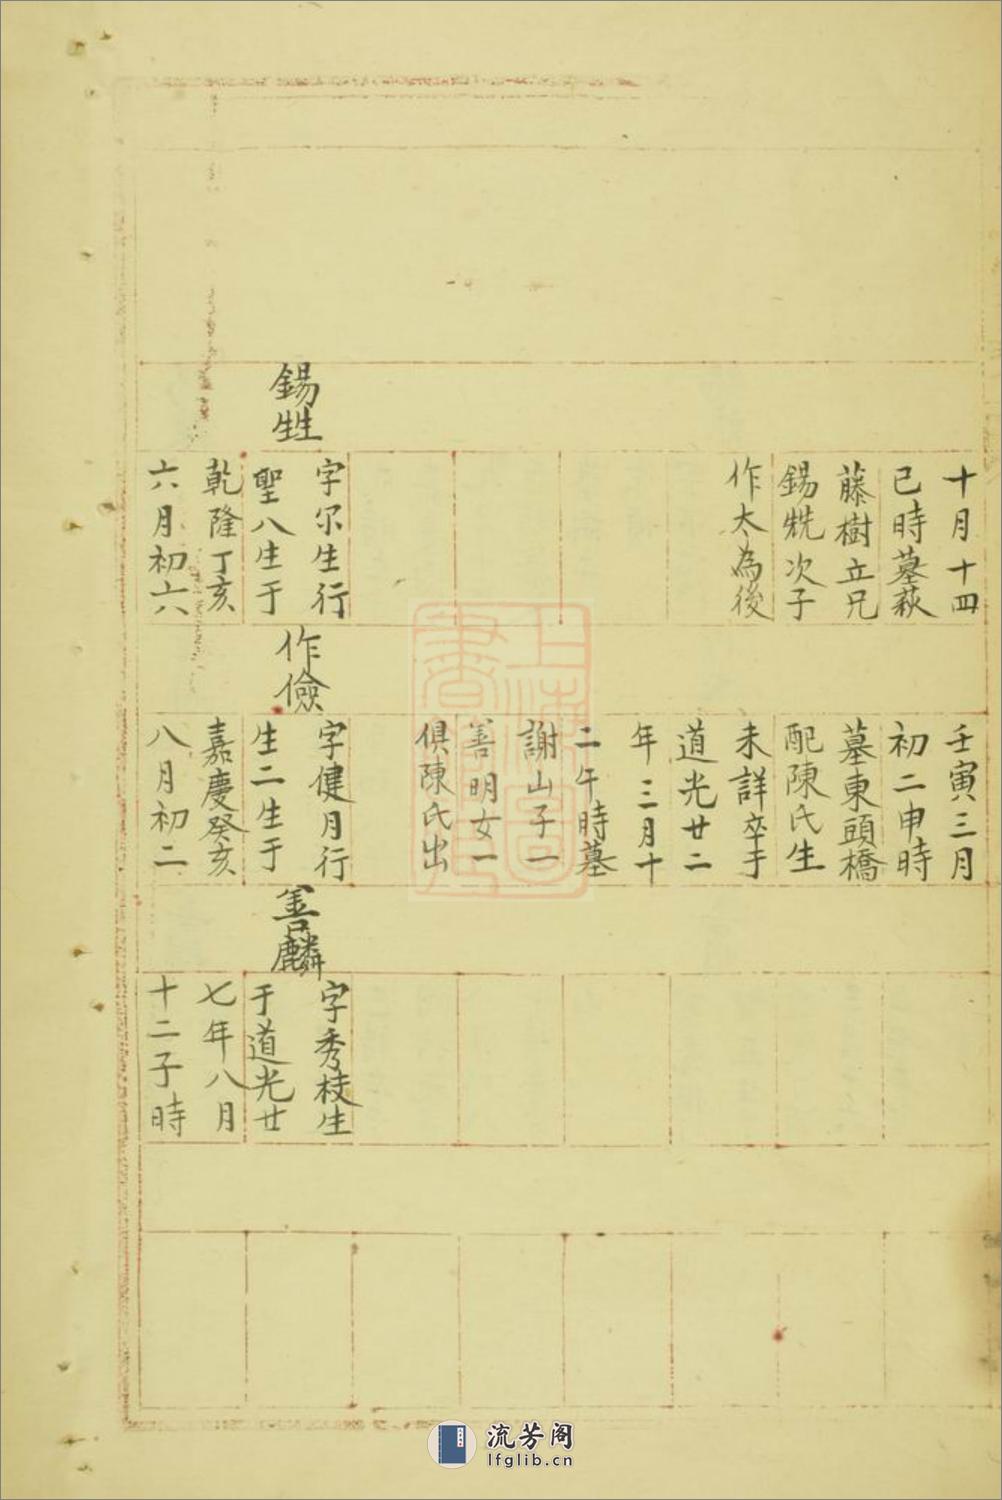 十月十四
已時墓萩
藤樹立兄
錫兟次子
作太為後
錫甡
字尔生行
聖八生于
乾隆丁亥
六月初六
壬寅三月
初二申時
墓東頭橋
配陳氏生
未詳卒于
道光廿二
年三月十
二午時墓
謝山子一
善明女一
俱陳氏出
作儉
字健月行
生二生于
嘉慶癸亥
八月初二
善麟
字秀枝生
于道光廿
七年八月
十二子時
上海圖書館藏
流芳阁
lfglib.cn